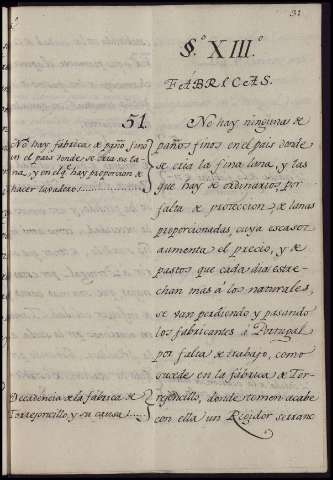 31
§.º XIII.º
FÁBRICAS.
51.
No hay fábrica de paño fino
en el país donde se cria su la-
na, y en el q.e hay proporcion de
hacer lavaderos
No hay ningunas de
paños finos en el país donde
se cria la fina lana, y las
que hay de ordinarios por
falta de proteccion, de lanas
proporcionadas, cuya escasez
aumenta el precio, y de
pastos que cada dia estre-
chan mas á los naturales,
se van perdiendo y pasando
los fabricantes á Portugal
por falta de trabajo, como
sucede en la fábrica de Tor-
rejoncillo, donde temen acabe
con ella un Rexidor serrano
Decadencia de la fábrica de
Torrejoncillo, y su causa